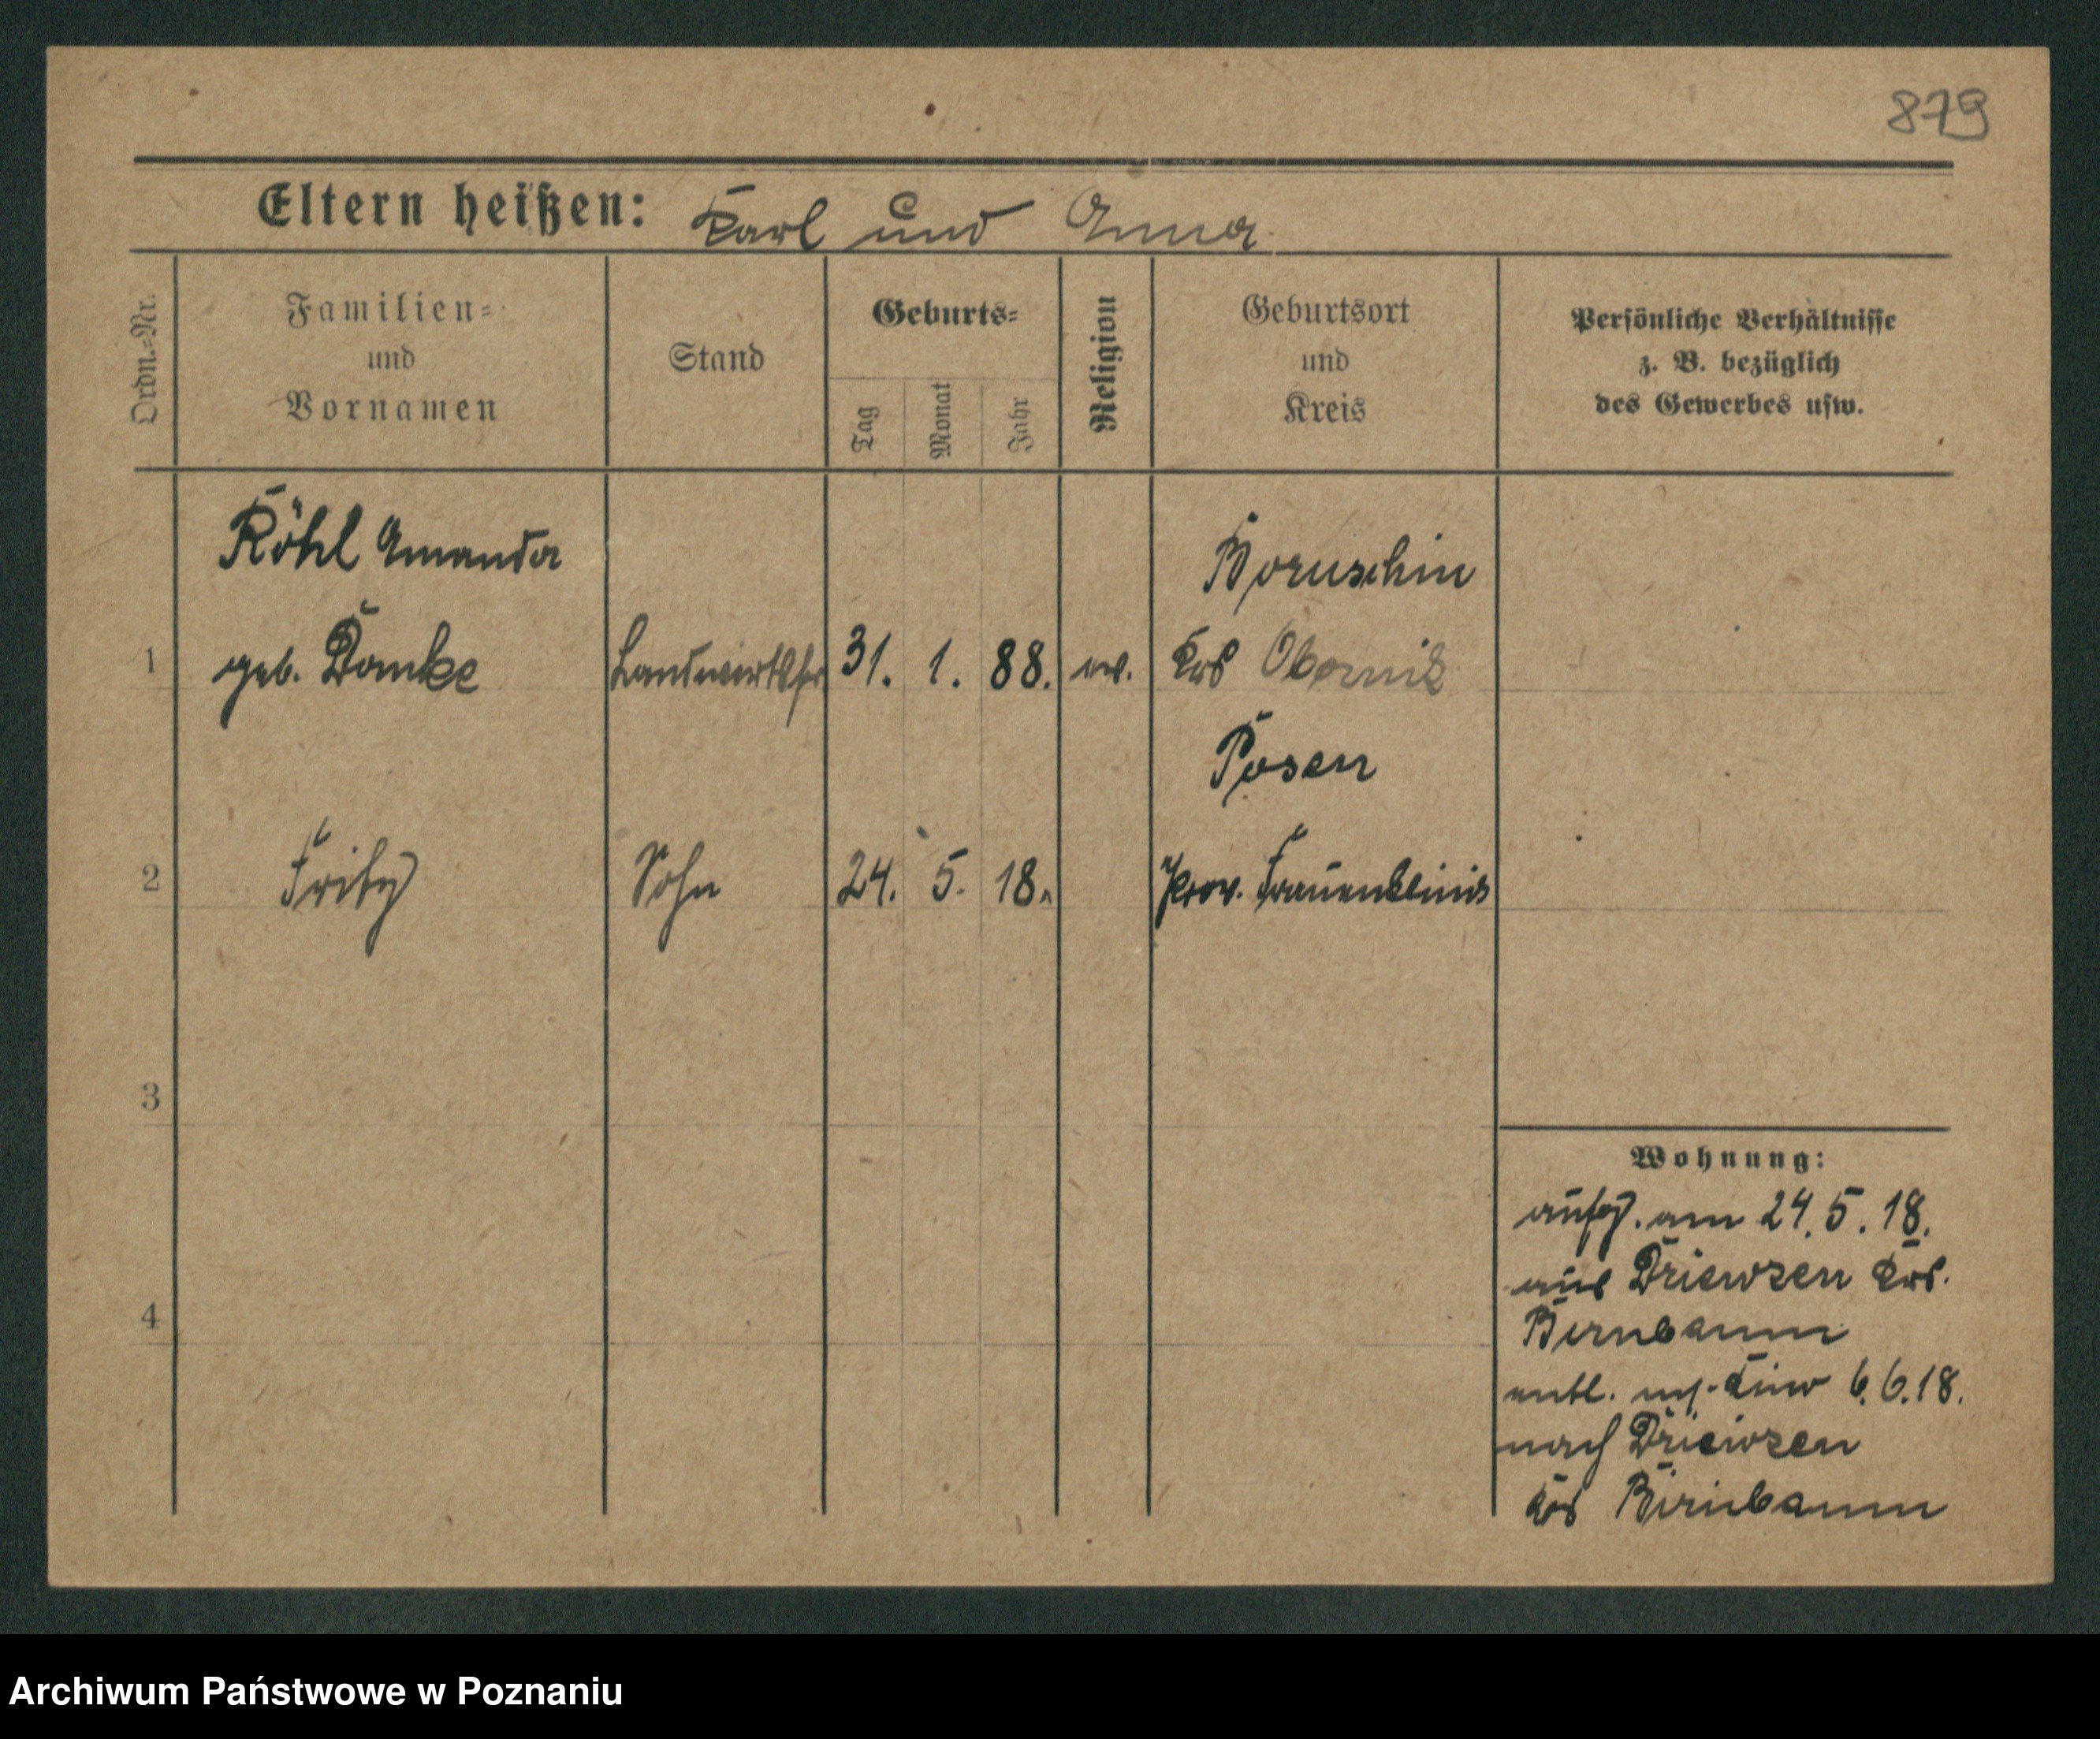 879
Eltern heißen: Karl und Anna
Ordn.=Nr.
Familien=
und
Vornamen
Stand
Geburts=
Tag
Monat
Jahr
Religion
Geburtsort
und
Kreis
Persönliche Verhältnisse
z. B. bezüglich
des Gewerbes usw.
Röhl Amanda
Boruschin
1 geb. Domke Landwirtsfr 31. 1. 88. ev. Krs Obornik
Posen
2 Fritz Sohn 24. 5. 18. Prov. Frauenklinik
3
4
Wohnung:
aufg. am 24.5.18.
aus Driewzen Krs.
Birnbaum
entl. 6.6.18.
nach Driewzen
Krs Birnbaum
Archiwum Państwowe w Poznaniu